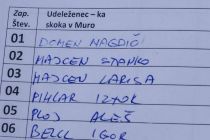 Zap. Štev. Udeleženec – ka skoka v Muro
01 DOMEN MAGDIČ
02 HADLEN STANKO
03 HADLEN LARISA
04 PIHLAR IZTOK
05 PLOJ ALEŠ
06 BELL IGOR